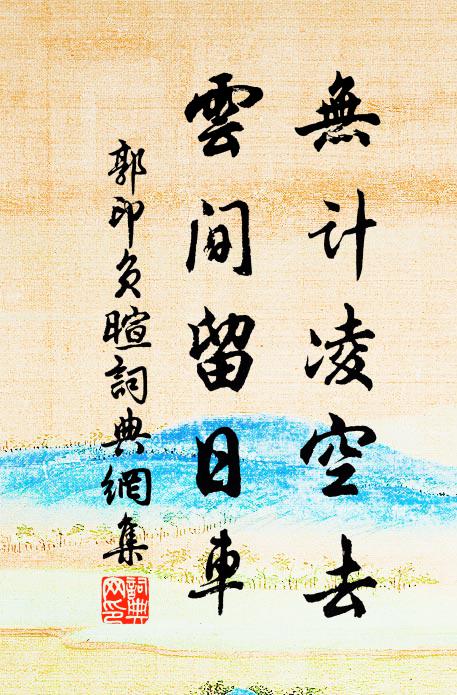 無计凌空去
雲间留日車
郭印负暄詞典網集
詞典網印